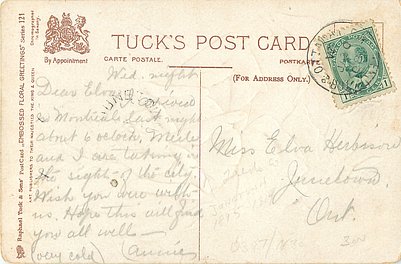 TUCK'S POST CARD
CARTE POSTALE.
POSTKARTE
By Appointment
(For Address Only.)
Raphael Tuck & Sons' Postcard "EMBOSSED FLORAL GREETINGS" Series 121
ART PUBLISHERS TO THEIR MAJESTIES THE KING & QUEEN
Wed. night
Dear Elva
Arrived
in Montreal last night
about 6 oclock,
and I are taking in
the sights of the city.
Wish you were with
us. Hope this will find
you all well —
(very cold) (Annie)
Miss Elva
Ont.
1 1